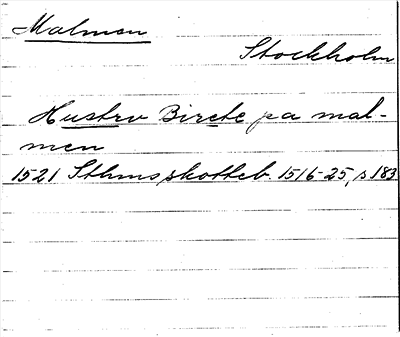 Malmen
Stockholm
Hustrv Birete pa mal-
men
1521 Sthms skotteb. 1516-25, s 183